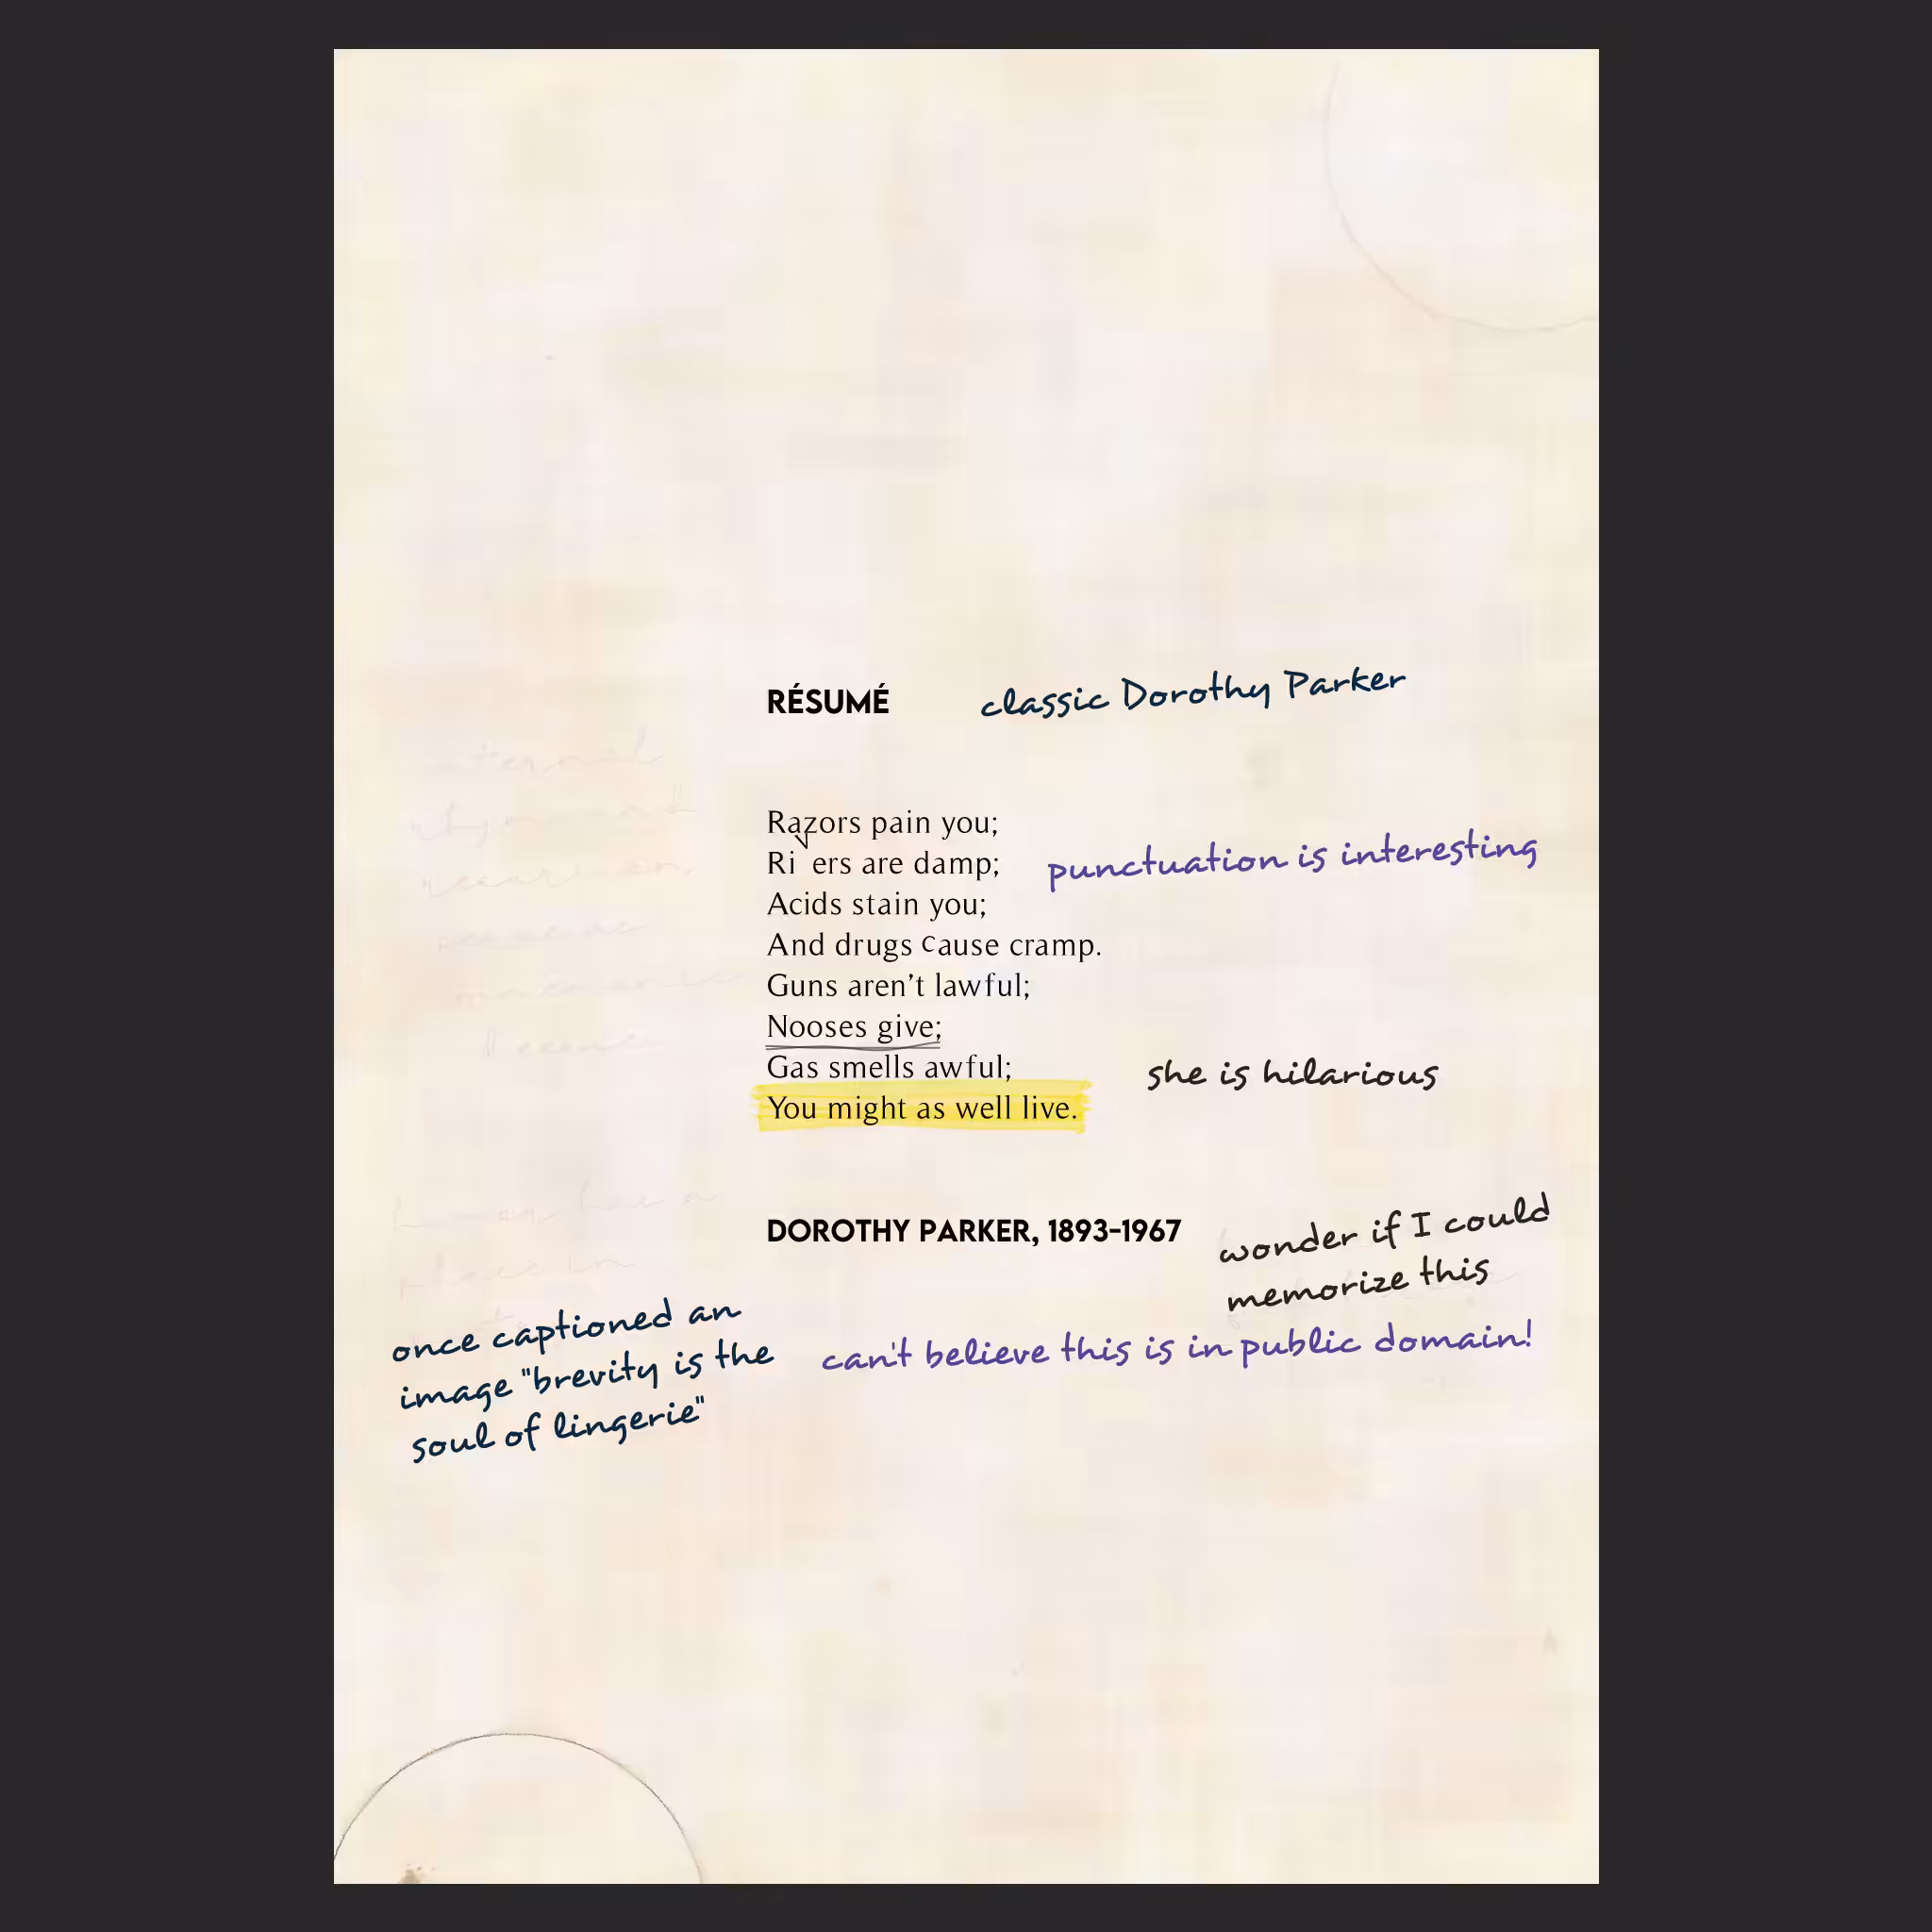 RÉSUMÉ
classic Dorothy Parker
Razors pain you;
Rivers are damp;
punctuation is interesting
Acids stain you;
And drugs cause cramp.
Guns aren't lawful;
Nooses give;
Gas smells awful;
she is hilarious
You might as well live.
DOROTHY PARKER, 1893-1967
wonder if I could
memorize this
once captioned an
image "brevity is the
soul of lingerie"
can't believe this is in public domain!